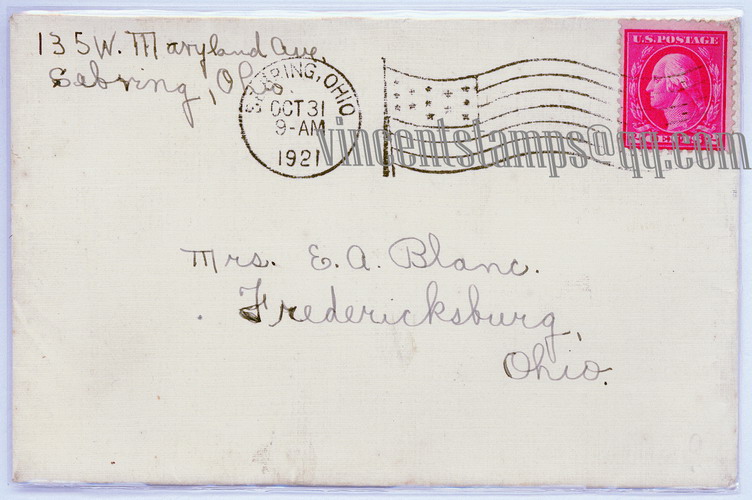 135 W. Maryland Ave.
Sebring, Ohio.
SEBRING, OHIO
OCT 31
9-AM
1921
U.S. POSTAGE
vincentstamps@qq.com
Mrs. E. A. Blanc.
Fredericksburg,
Ohio.